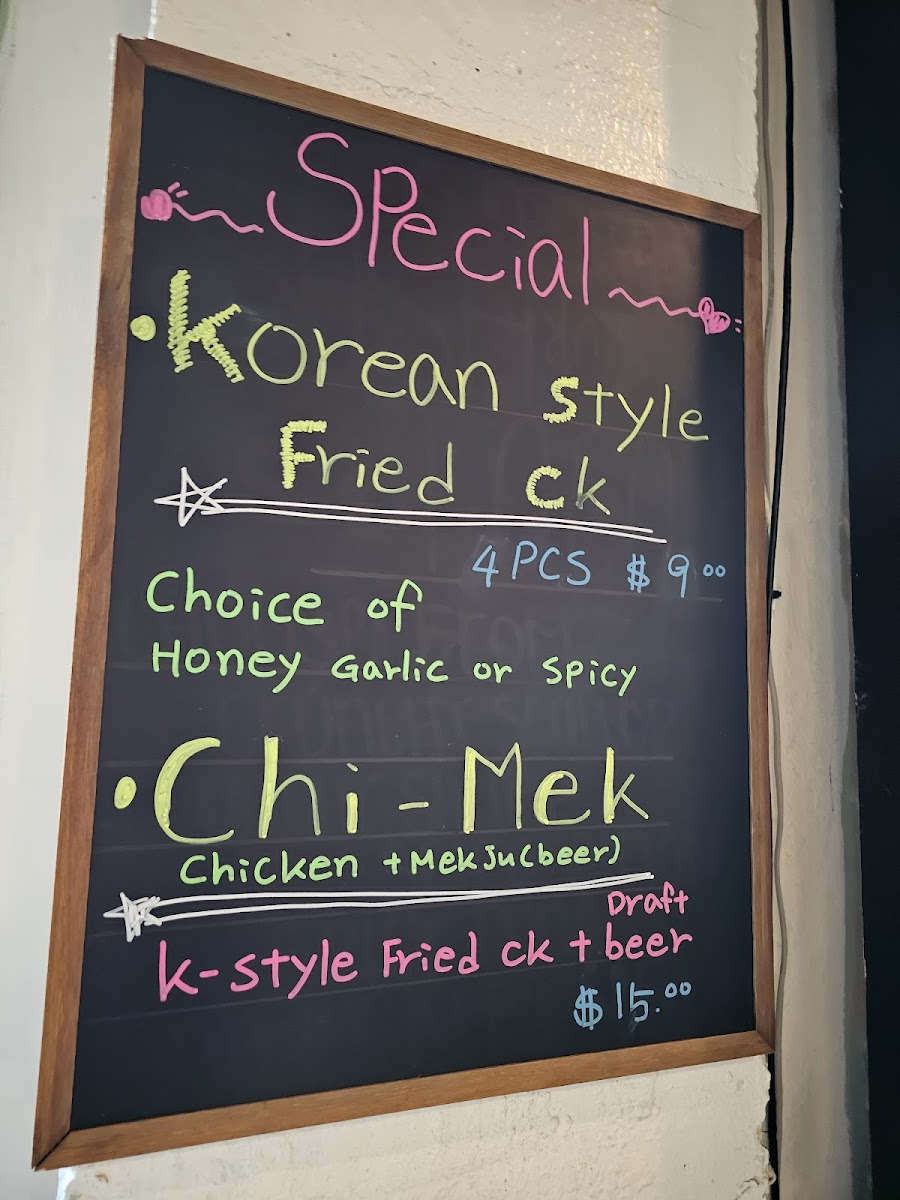 Special
Korean style
Fried ck
4 PCS $ 9.00
Choice of
Honey Garlic or Spicy
Chi-Mek
Chicken + MekJu(beer)
Draft
K-style Fried ck + beer
$ 15.00